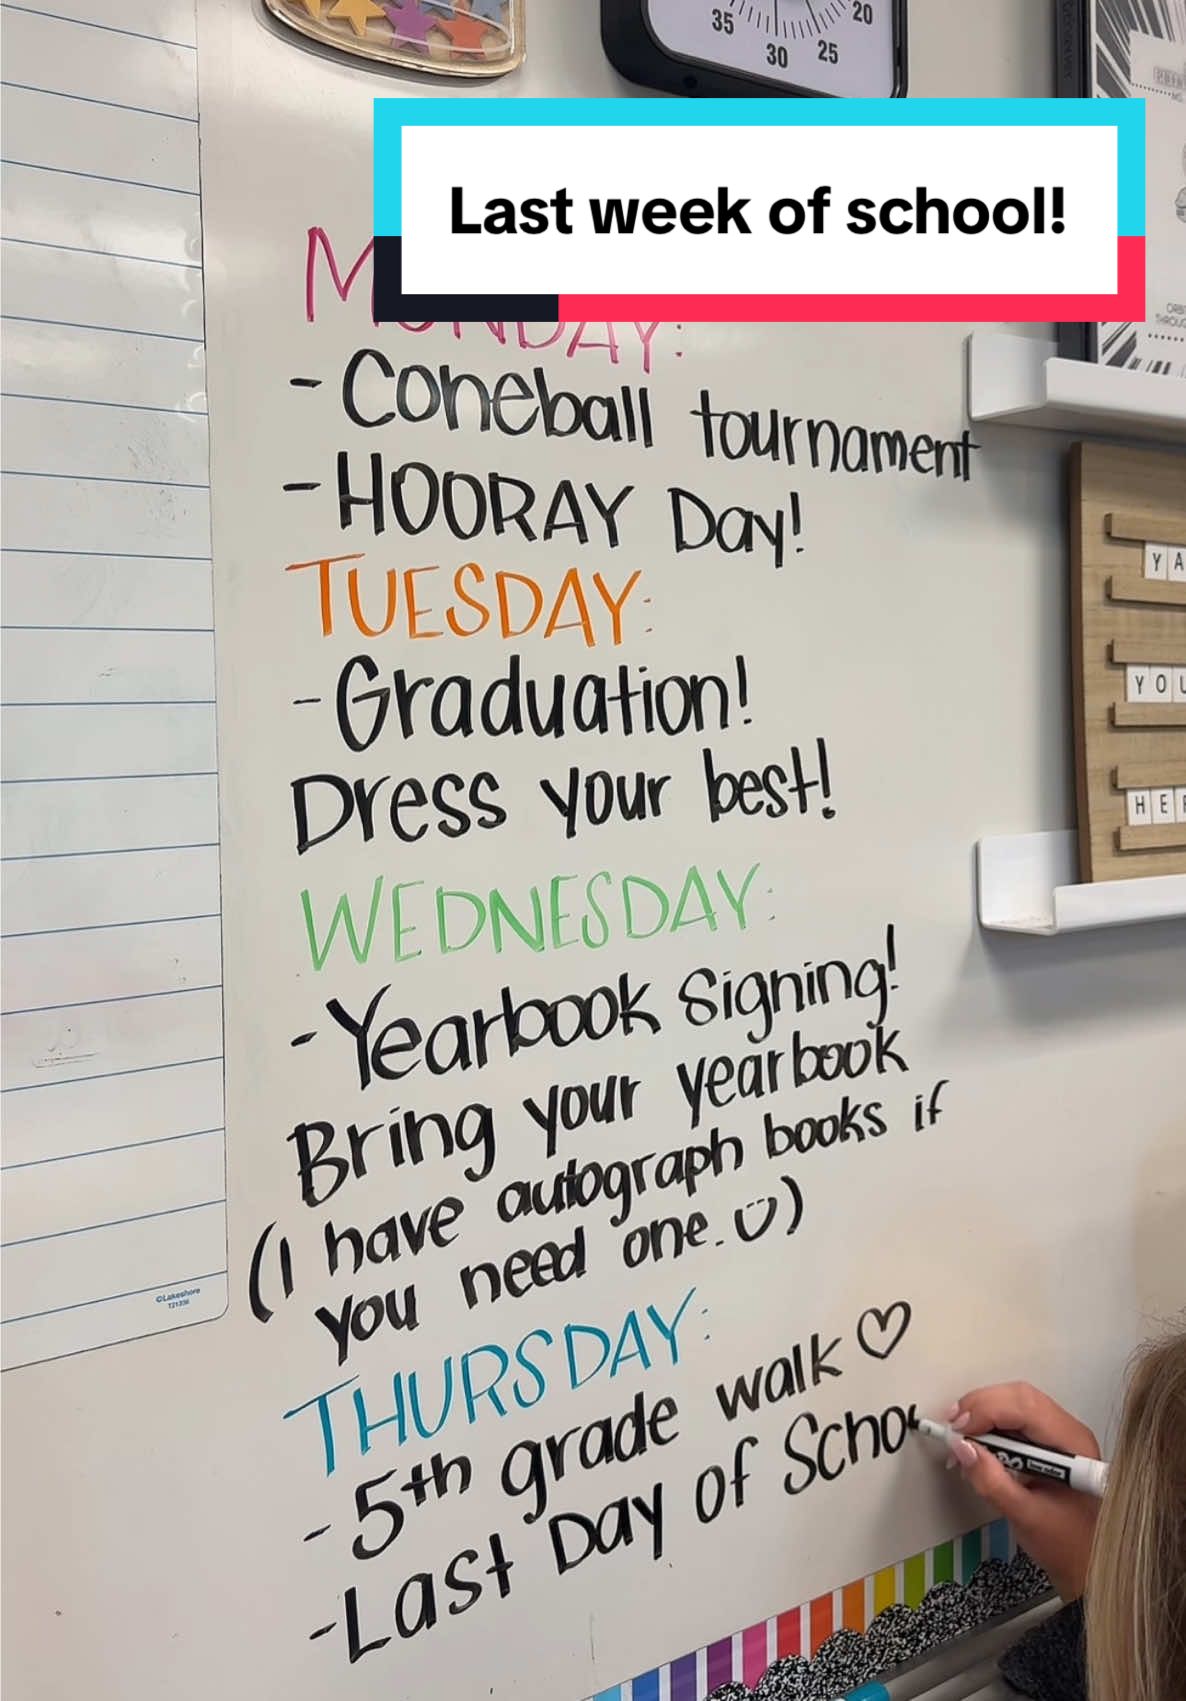 35 30 25 20
Last week of school!
MONDAY:
- Coneball tournament
- HOORAY Day!
TUESDAY:
- Graduation!
Dress your best!
WEDNESDAY:
- Yearbook Signing!
Bring your yearbook
(I have autograph books if
you need one. ☺)
THURSDAY:
- 5th grade walk ♡
- Last Day of Schoo
YA
YOU
HER
©Lakeshore